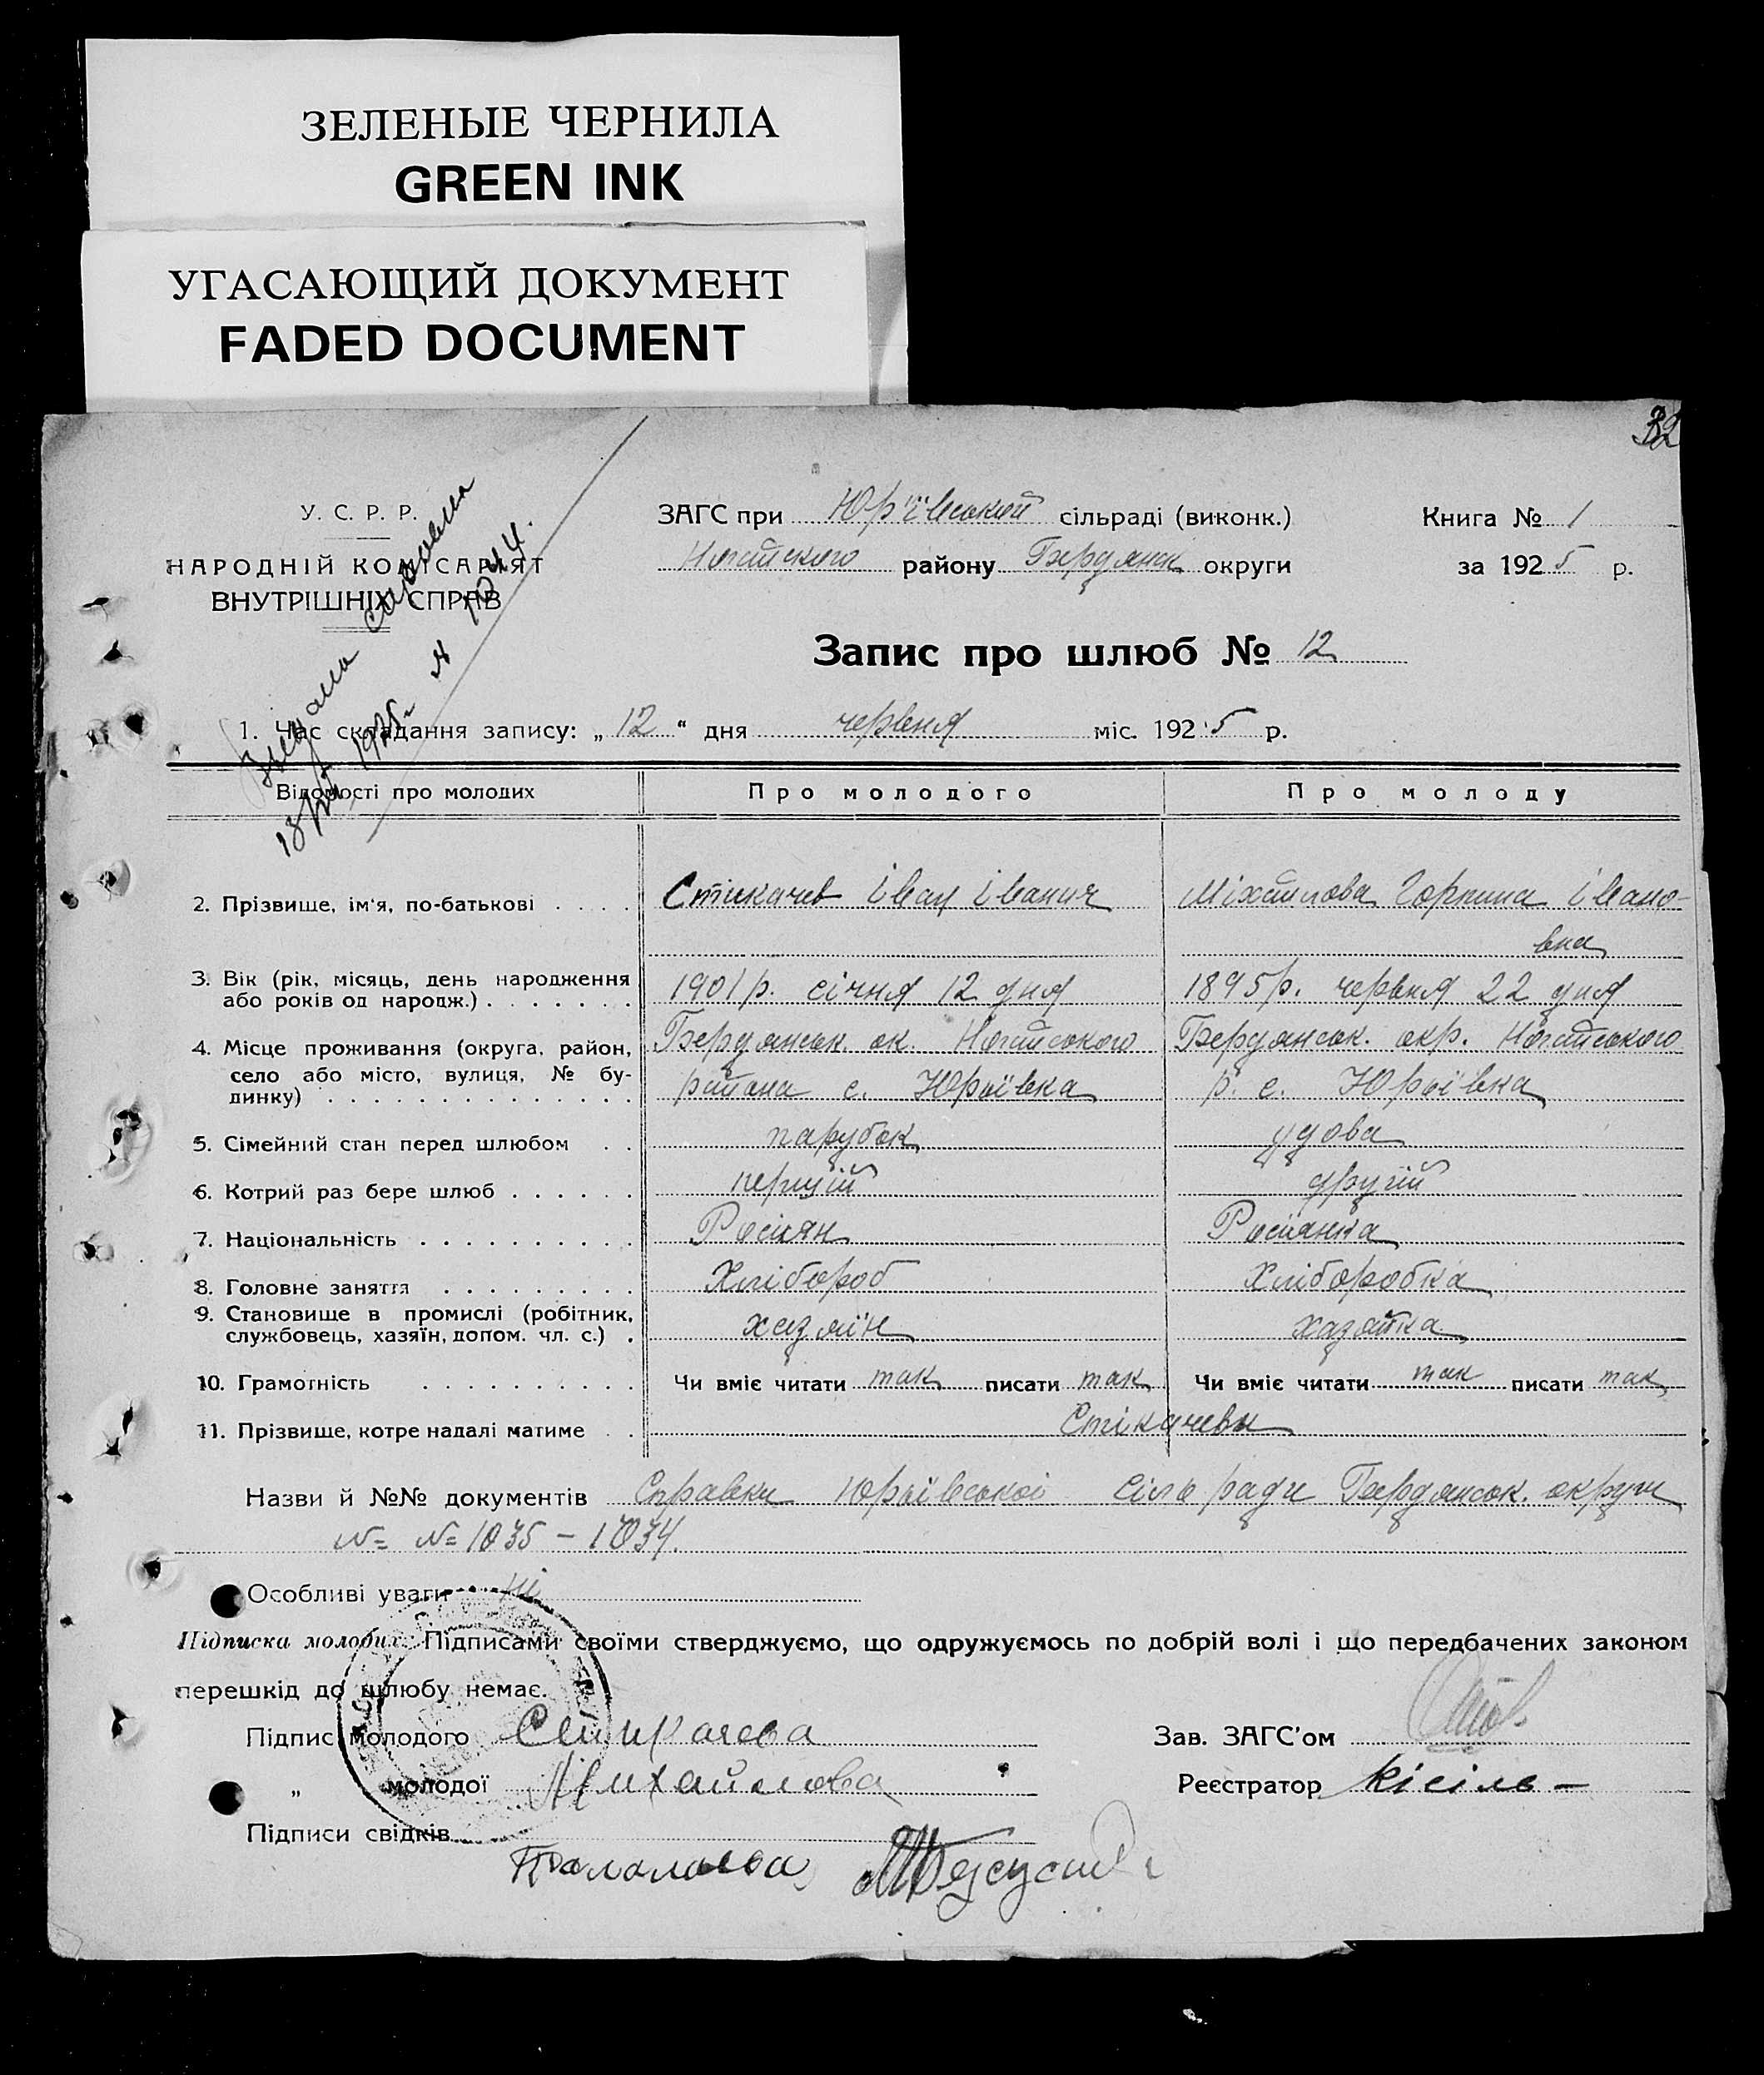 ЗЕЛЕНЫЕ ЧЕРНИЛА
GREEN INK
УГАСАЮЩИЙ ДОКУМЕНТ
FADED DOCUMENT
32
У. С. Р. Р.
НАРОДНІЙ КОМІСАРІЯТ
ВНУТРІШНІХ СПРАВ
ЗАГС при Юр'ївській сільраді (виконк.)
Ногайского району Бердянск округи
Книга № 1
за 1925 р.
Запис про шлюб № 12
1. Час складання запису: „12“ дня червня міс. 1925 р.
Відомості про молодих Про молодого Про молоду
2. Прізвище, ім'я, по-батькові . . . . Стикачев Іван Іванич Міхайлова Горпина Івано-
вна
3. Вік (рік, місяць, день народження або років од народж.) . . . . . . . 1901 р. січня 12 дня 1895 р. червня 22 дня
4. Місце проживання (округа, район, Бердянськ. ок. Ногайського Бердянськ. окр. Ногайського
село або місто, вулиця, № бу-
динку) . . . . . . . . . . . . . . района с. Юріївка р. с. Юріївка
5. Сімейний стан перед шлюбом . . парубок удова
6. Котрий раз бере шлюб . . . . . . перший другій
7. Національність . . . . . . . . . . Росиян Росіянка
8. Головне заняття . . . . . . . . . Хлібороб Хліборобка
9. Становище в промислі (робітник,
службовець, хазяїн, допом. чл. с.) . хазяїн хазяйка
10. Грамотність . . . . . . . . . . Чи вміє читати так писати так Чи вміє читати так писати так
11. Прізвище, котре надалі матиме . . Стікачеви
Назви й №№ документів Справки Юріївської сіль ради Бердянськ. округи
№ № 1035 – 1034.
Особливі уваги ні
Підписка молодих: Підписами своїми стверджуємо, що одружуємось по добрій волі і що передбачених законом
перешкід до шлюбу немає.
Підпис молодого Стикачева Зав. ЗАГС'ом
„ молодої Михайлова Реєстратор Кісіль –
Підписи свідків